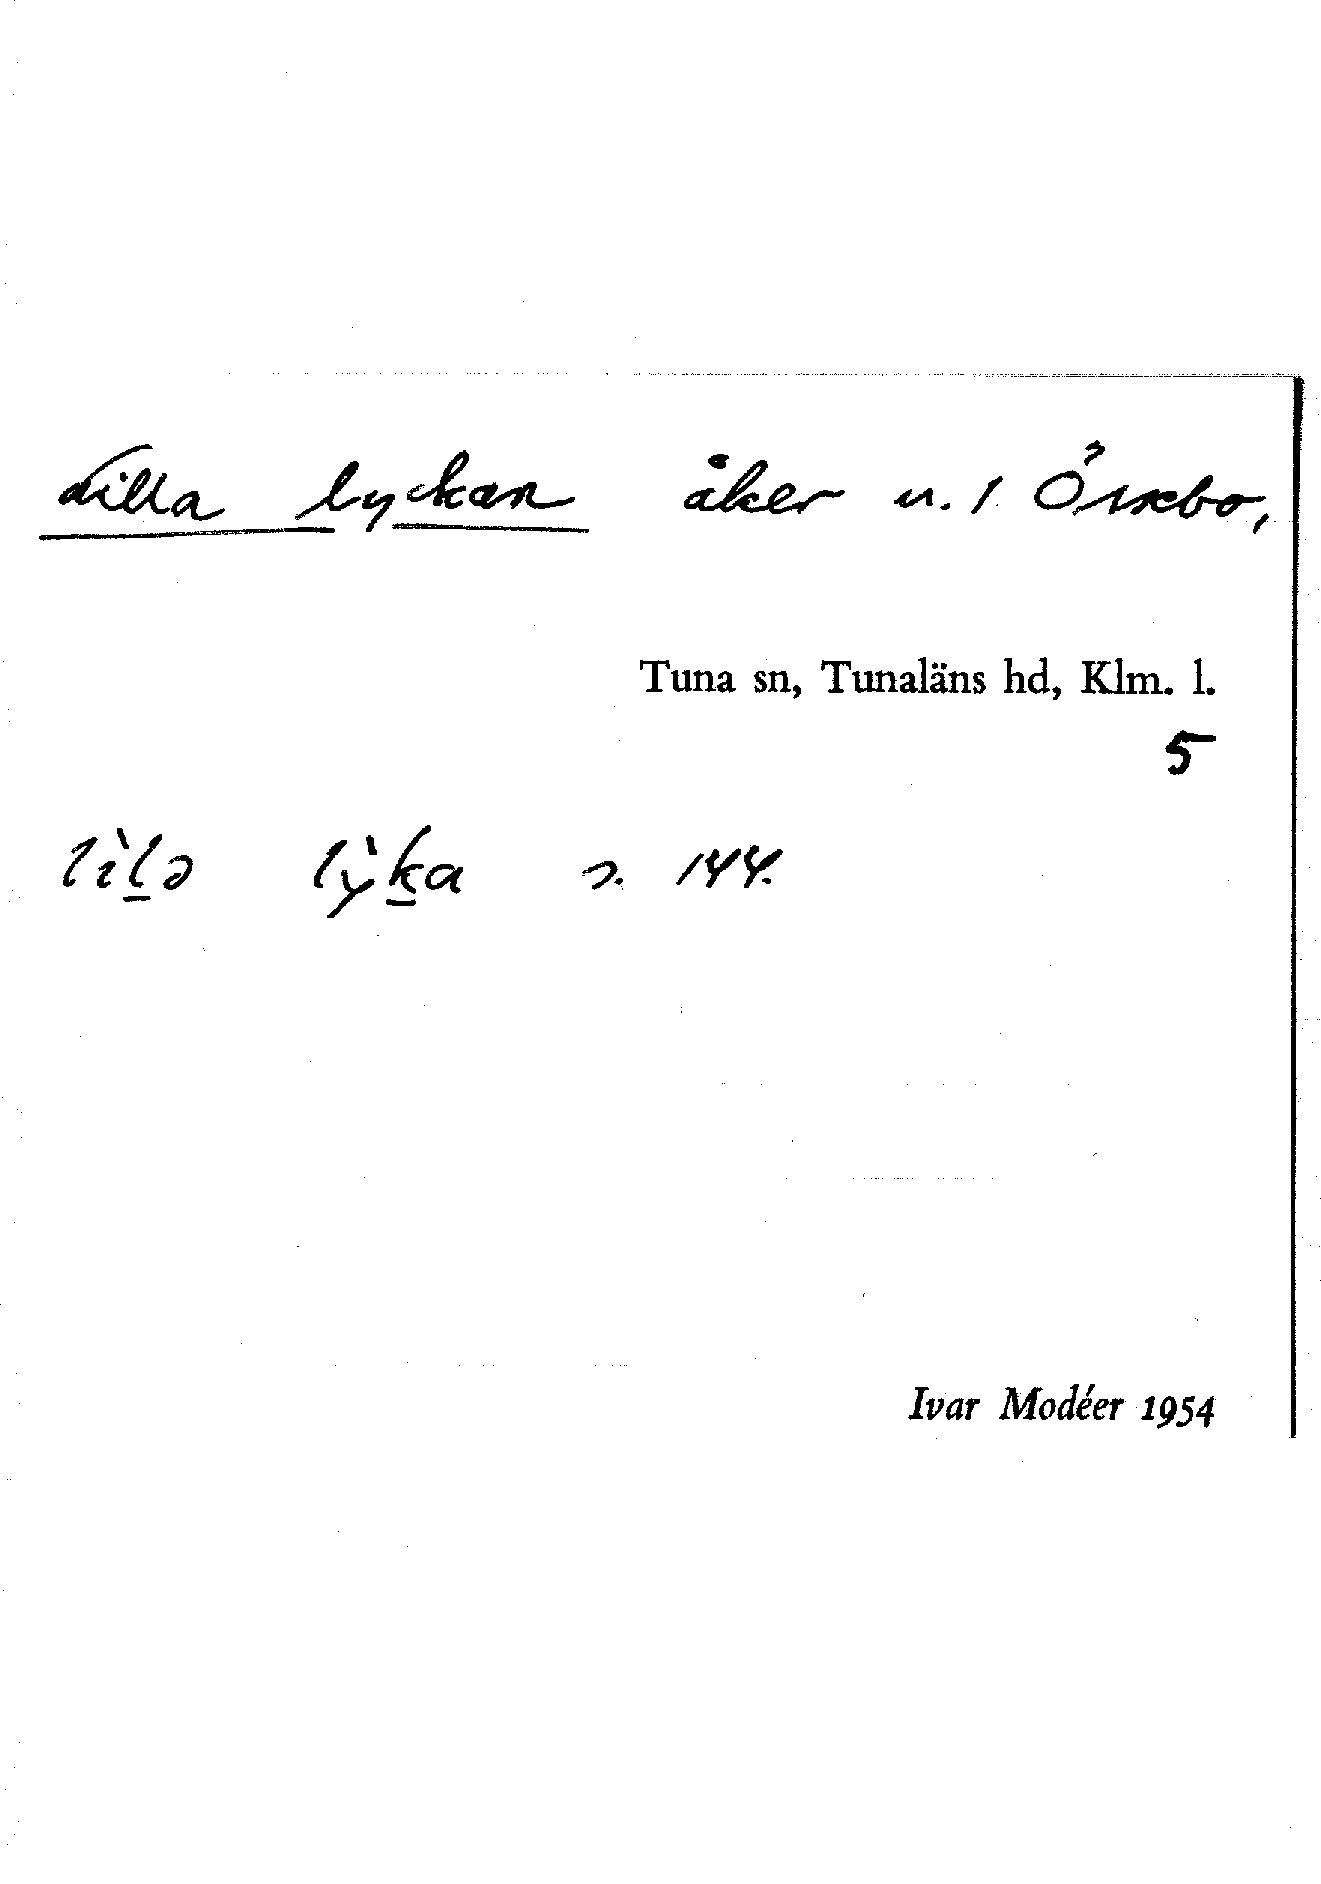 Lilla lyckan åker u. 1 Örsebo,
Tuna sn, Tunaläns hd, Klm. l.
5
lìl̠ə lỳk̠a s. 144.
Ivar Modéer 1954